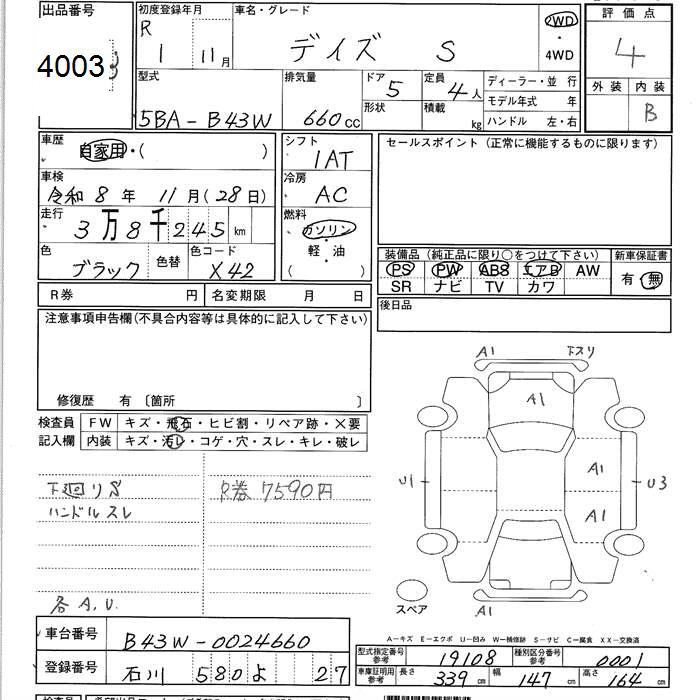 出品番号 初度登録年月 車名・グレード 評価点
4003 R 1 11月 デイズ S 2WD・4WD 4
型式 排気量 ドア 定員 ディーラー・並行 外装 内装
5BA-B43W 660cc 5 4人 モデル年式 年 B
形状 積載 kg ハンドル 左・右
車歴 シフト セールスポイント (正常に機能するものに限ります)
自家用・( ) 1AT
車検 冷房
令和8年 11月(28日) AC
走行 燃料
3万8千245km ガソリン・軽・油
( )
色 色替 色コード 装備品 (純正品に限り○をつけて下さい) 新車保証書
ブラック X42 PS PW ABS エアB AW 有・無
SR ナビ TV カワ
R券 円 名変期限 月 日 後日品
注意事項申告欄(不具合内容等は具体的に記入して下さい)
修復歴 有 〔箇所 〕
検査員 FW キズ・飛石・ヒビ割・リペア跡・×要
記入欄 内装 キズ・汚レ・コゲ・穴・スレ・キレ・破レ
A1 下スリ
A1
A1
U1 U3
A1
下廻りS R券7590円
ハンドルスレ
各A,U.
スペア A1
A-キズ E-エクボ U-凹み W-補修跡 S-サビ C-腐食 XX-交換済
車台番号 B43W-0024660
型式指定番号 参考 19108 種別区分番号 参考 0001
登録番号 石川 580 よ 27
車庫証明用 参考 長さ 339cm 幅 147cm 高さ 164cm